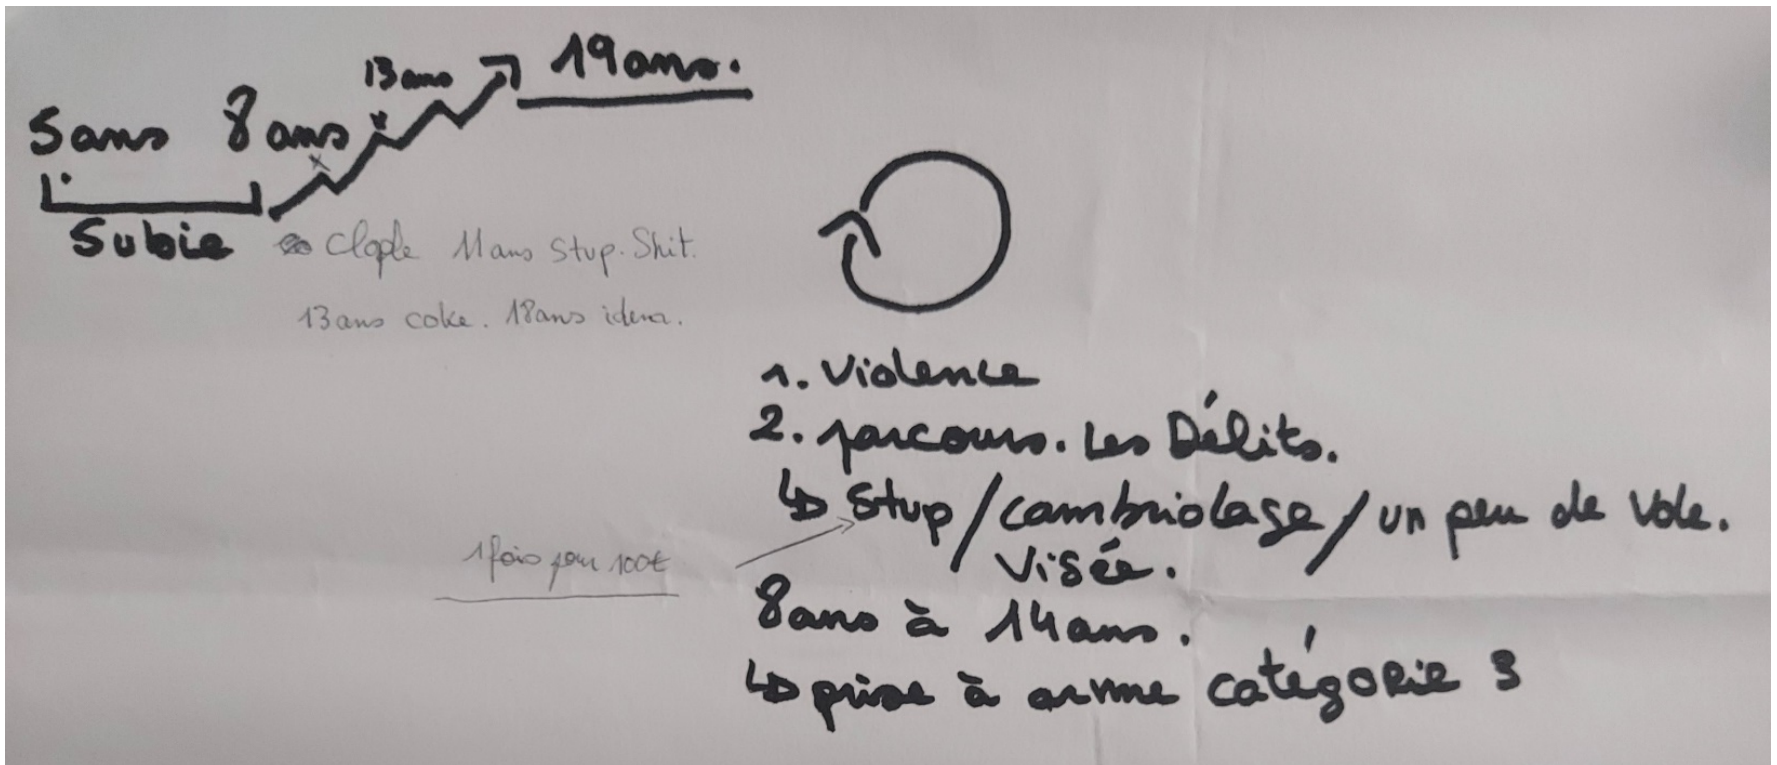 13 ans
19 ans.
5 ans 8 ans
Subie
Clope 11 ans Stup. Shit.
13 ans coke. 18 ans idem.
1. Violence
2. parcours. Les Délits.
↳ Stup / cambriolage / un peu de Vole.
Visée.
1 fois pour 100€
8 ans à 14 ans.
↳ prise à arme catégorie 3